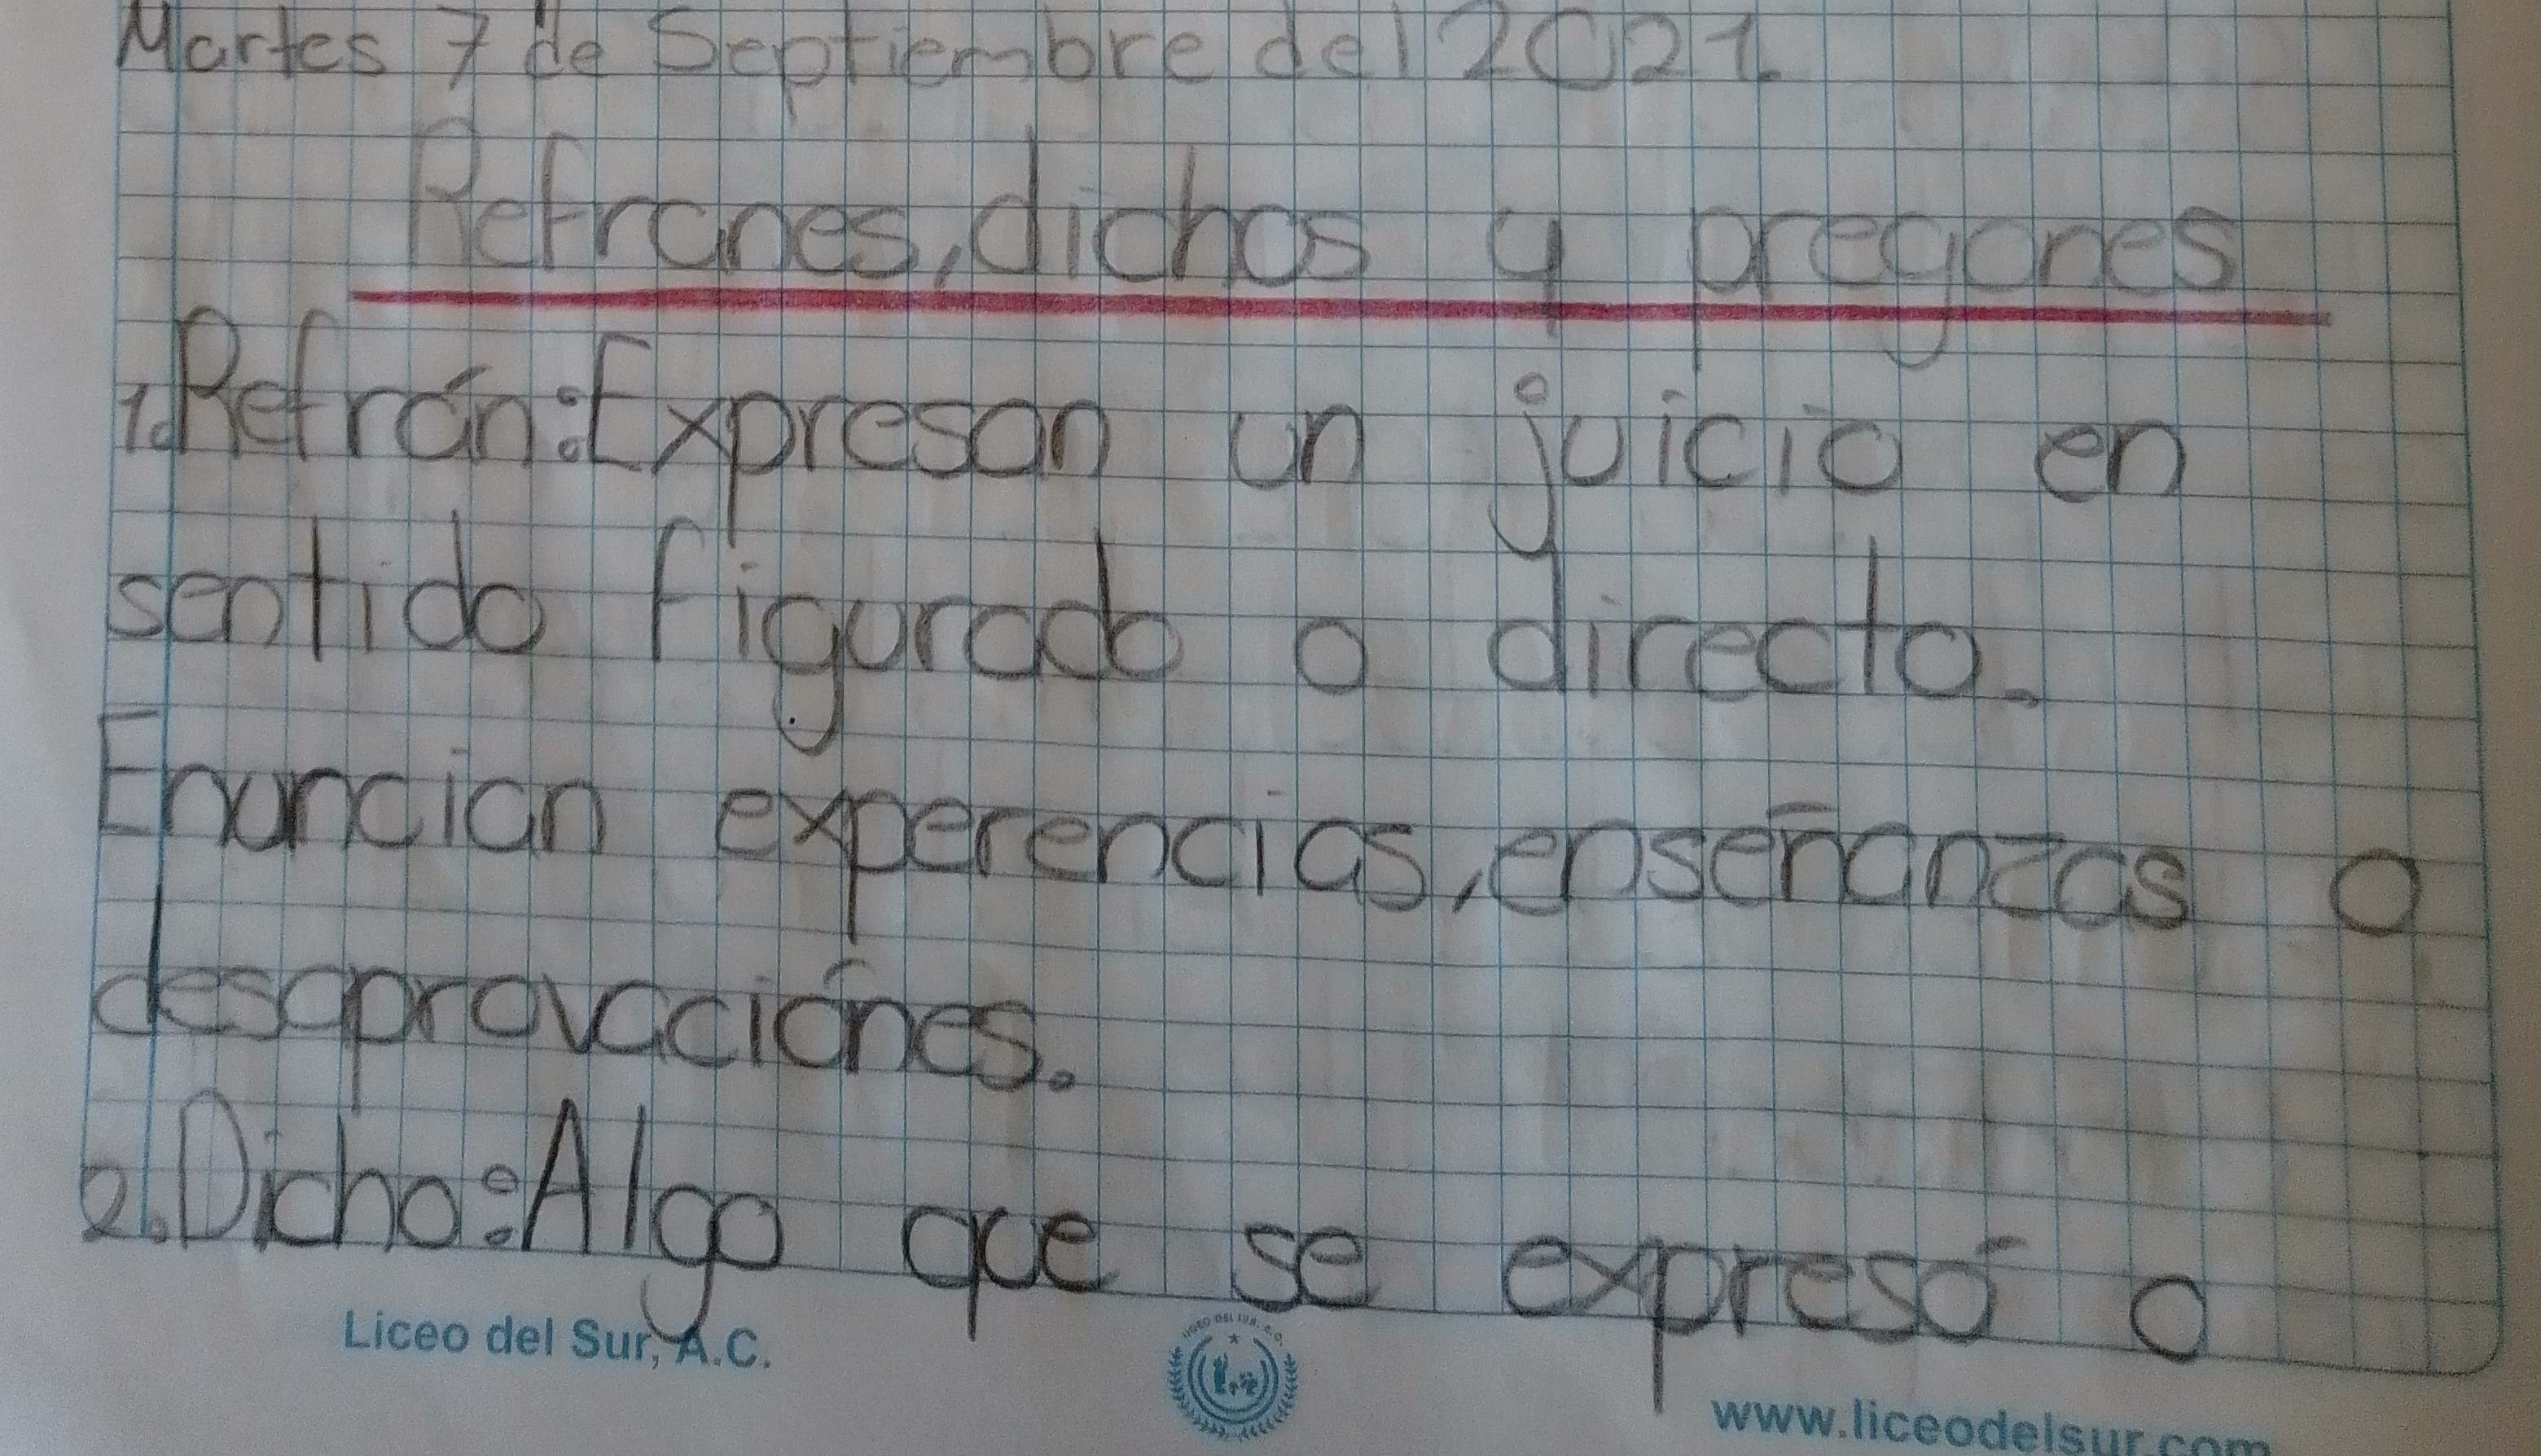 Martes 7 de Septiembre del 2021.
Refranes, dichos y pregones
1. Refrán: Expresan un juicio en
sentido figurado o directo.
Enuncian experencias, enseñanzas o
desaprovaciónes.
2. Dicho: Algo que se expresó o
Liceo del Sur, A.C.
LICEO DEL SUR, A.C.
www.liceodelsur.com